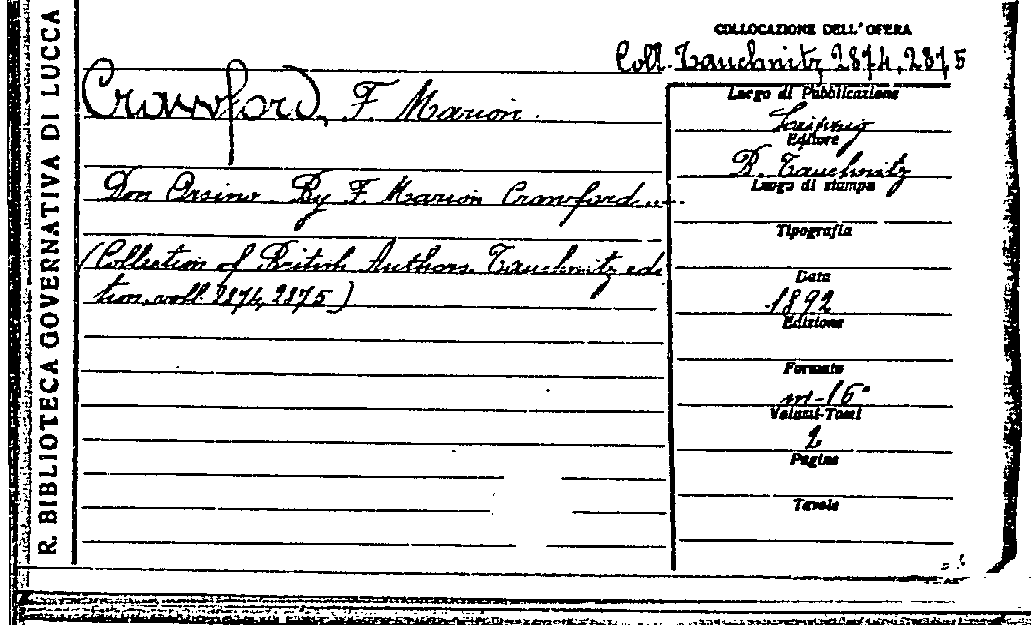 R. BIBLIOTECA GOVERNATIVA DI LUCCA
COLLOCAZIONE DELL'OPERA
Coll. Tauchnitz, 2874, 2875
Crawford, F. Marion.
Don Orsino. By F. Marion Crawford....
(Collection of British Authors. Tauchnitz edi
tion, voll. 2874, 2875)
Luogo di Pubblicazione
Editore
B. Tauchnitz
Luogo di stampa
Tipografia
Data
1892
Edizione
Formato
in-16°
Volumi-Tomi
2
Pagine
Tavole